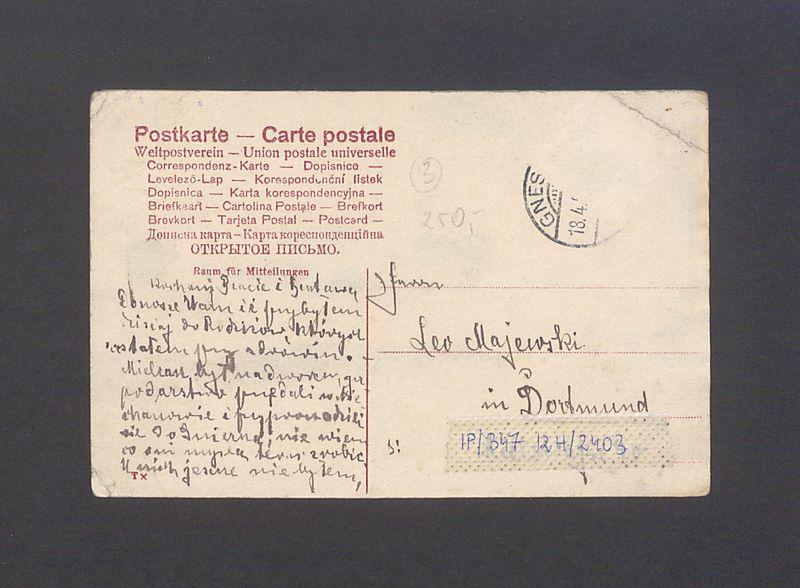 Postkarte — Carte postale
Weltpostverein — Union postale universelle
Correspondenz-Karte — Dopisnice —
Levelező-Lap — Korespondenční lístek
Dopisnica — Karta korespondencyjna —
Briefkaart — Cartolina Postale — Brefkort
Brevkort — Tarjeta Postal — Postcard —
Дописна карта — Карта кореспонденційна
ОТКРЫТОЕ ПИСЬМО.
Raum für Mitteilungen
3
250,-
GNES
18.4.
Kochany Bracie i
Donoszę Wam iż przybyłem
dzisiaj do Rodziców których
zastałem przy zdrowiu.
był na dworcu,
sprzedali w
i przyprowadzili
się do Gniezna, nie wiem
co oni myślą teraz zrobić
U nich jeszcze nie byłem,
TX
Herrn
Leo Majewski
in Dortmund
IP/347 12H/2403